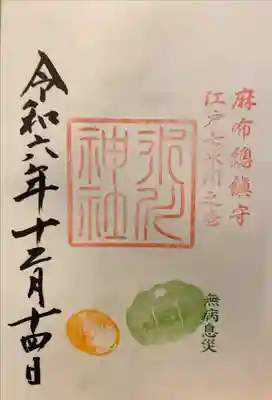 麻布總鎮守
江戸七氷川之宮
氷川神社
無病息災
令和六年十二月十四日